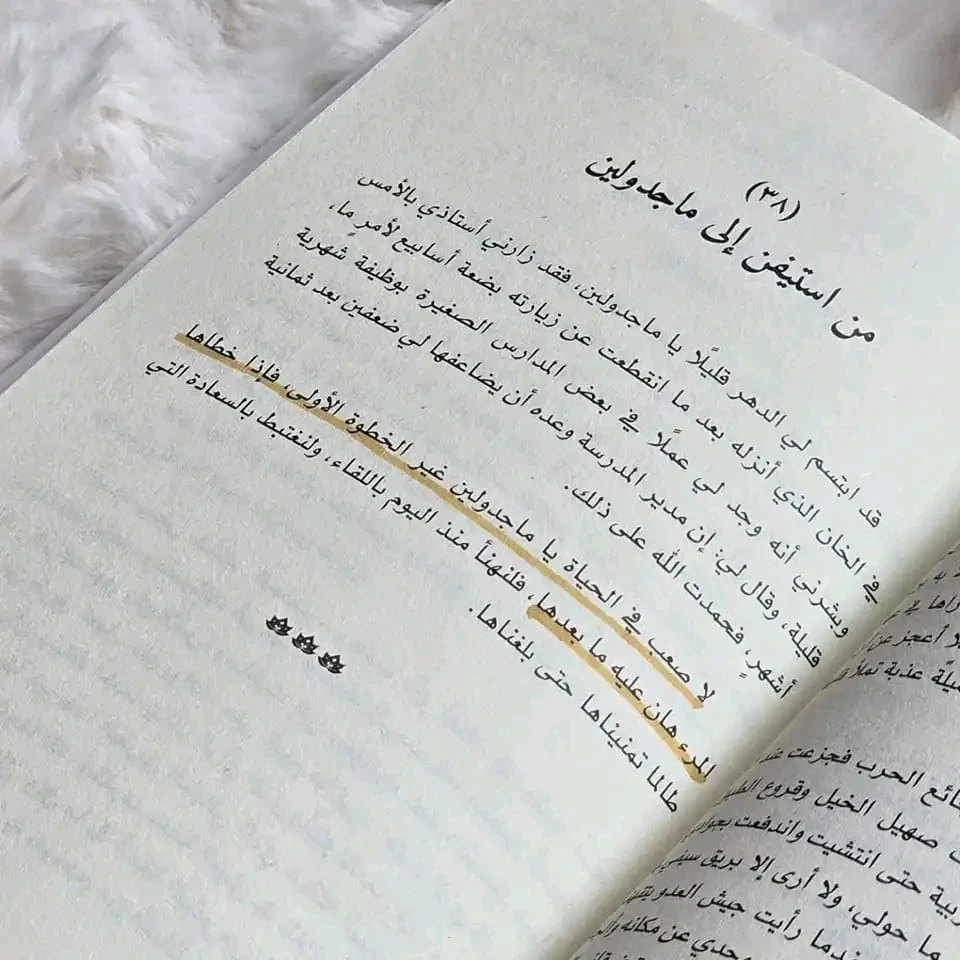 (٣٨)
من استيفن إلى ماجدولين
قد ابتسم لي الدهر قليلًا يا ماجدولين، فقد زارني أستاذي بالأمس
في الخان الذي أنزله بعد ما انقطعت عن زيارته بضعة أسابيع لأمرٍ ما،
وبشرني أنه وجد لي عملًا في بعض المدارس الصغيرة بوظيفة شهرية
قليلة، وقال لي: إن مدير المدرسة وعده أن يضاعفها لي ضعفين بعد ثمانية
أشهرٍ، فحمدت الله على ذلك.
لا صعب في الحياة يا ماجدولين غير الخطوة الأولى، فإذا خطاها
المرء هان عليه ما بعدها، فلنهنأ منذ اليوم باللقاء، ولنغتبط بالسعادة التي
طالما تمنيناها حتى بلغناها.
لا أعجز عن
عذبة
ائع الحرب فجزعت
صهيل الخيل وقروع
حتى انتشيت واندفعت
ما حولي، ولا أرى إلا بريق
ندما رأيت جيش العدو
وحدي عن مكانه